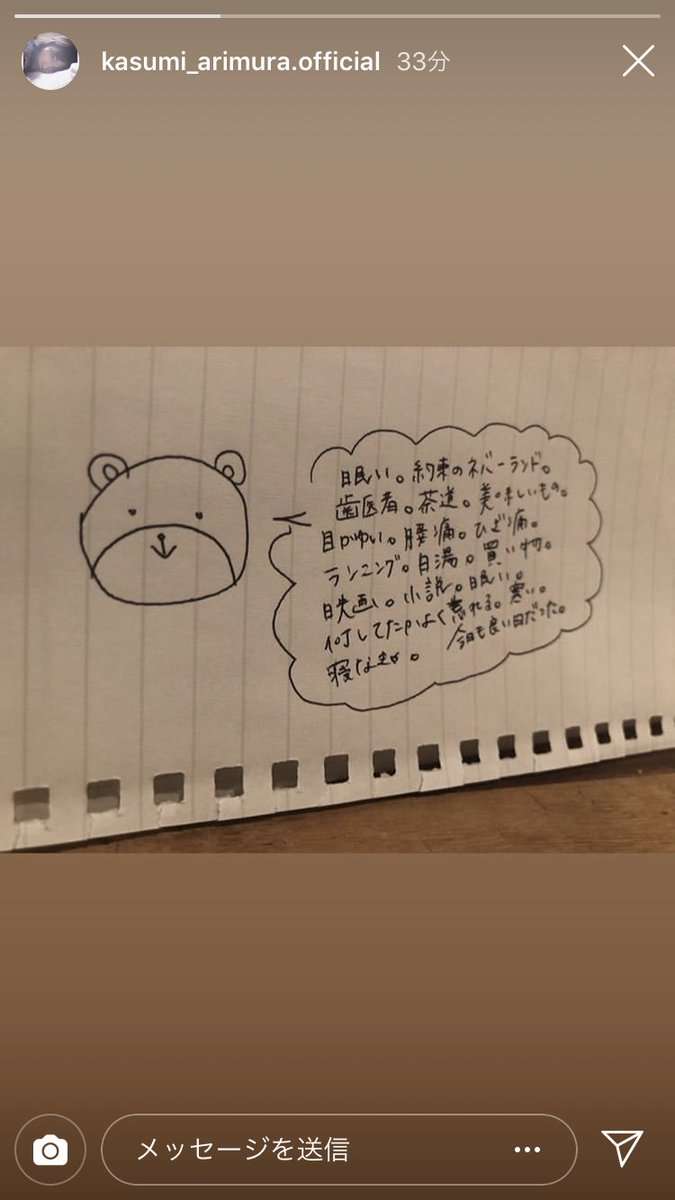 kasumi_arimura.official 33分
眠い。約束のネバーランド。
歯医者。茶道。美味しいもの。
目かゆい。腰痛。ひざ痛。
ランニング。白湯。買い物。
映画。小説。眠い。
何してたかよく忘れる。寒い。
寝なきゃ。 今日も良い日だった。
メッセージを送信